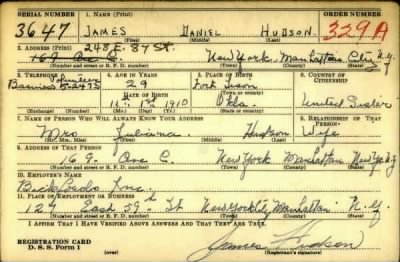 SERIAL NUMBER 1. NAME (Print) ORDER NUMBER
3647 JAMES DANIEL HUDSON 329A
(First) (Middle) (Last)
2. ADDRESS (Print) 248 E. 87 St.
169 Ave C. New York Manhattan City N.Y.
(Number and street or R. F. D. number) (Town) (County) (State)
3. TELEPHONE 4. AGE IN YEARS 5. PLACE OF BIRTH 6. COUNTRY OF CITIZENSHIP
Volunteer 29 Fort
DATE OF BIRTH
5-2475 1st 1910 Okla. United
(Exchange) (Number) (Mo.) (Day) (Yr.) (Town or county) (State or country)
7. NAME OF PERSON WHO WILL ALWAYS KNOW YOUR ADDRESS 8. RELATIONSHIP OF THAT PERSON
Mrs Hudson Wife
(Mr., Mrs., Miss) (First) (Middle) (Last)
9. ADDRESS OF THAT PERSON
169. Ave C. New York Manhattan New York
(Number and street or R. F. D. number) (Town) (County) (State)
10. EMPLOYER'S NAME
Inc.
11. PLACE OF EMPLOYMENT OR BUSINESS
127 East 59th St New York City Manhattan N.Y.
(Number and street or R. F. D. number) (Town) (County) (State)
I AFFIRM THAT I HAVE VERIFIED ABOVE ANSWERS AND THAT THEY ARE TRUE.
REGISTRATION CARD
D. S. S. Form 1 James Hudson
(Registrant's signature)